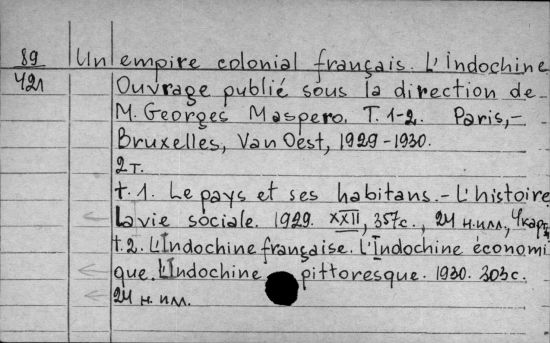 89 Un empire colonial français. L'Indochine
421 Ouvrage publié sous la direction de
M. Georges Maspero. T. 1-2. Paris,-
Bruxelles, Van Oest, 1929-1930.
2 т.
t. 1. Le pays et ses habitans. - L'histoire
La vie sociale. 1929. XXII, 357 с., 24 н. илл., 4 карт
t. 2. L'Indochine française. L'Indochine économi
que. L'Indochine pittoresque. 1930. 303 с.
24 н. илл.